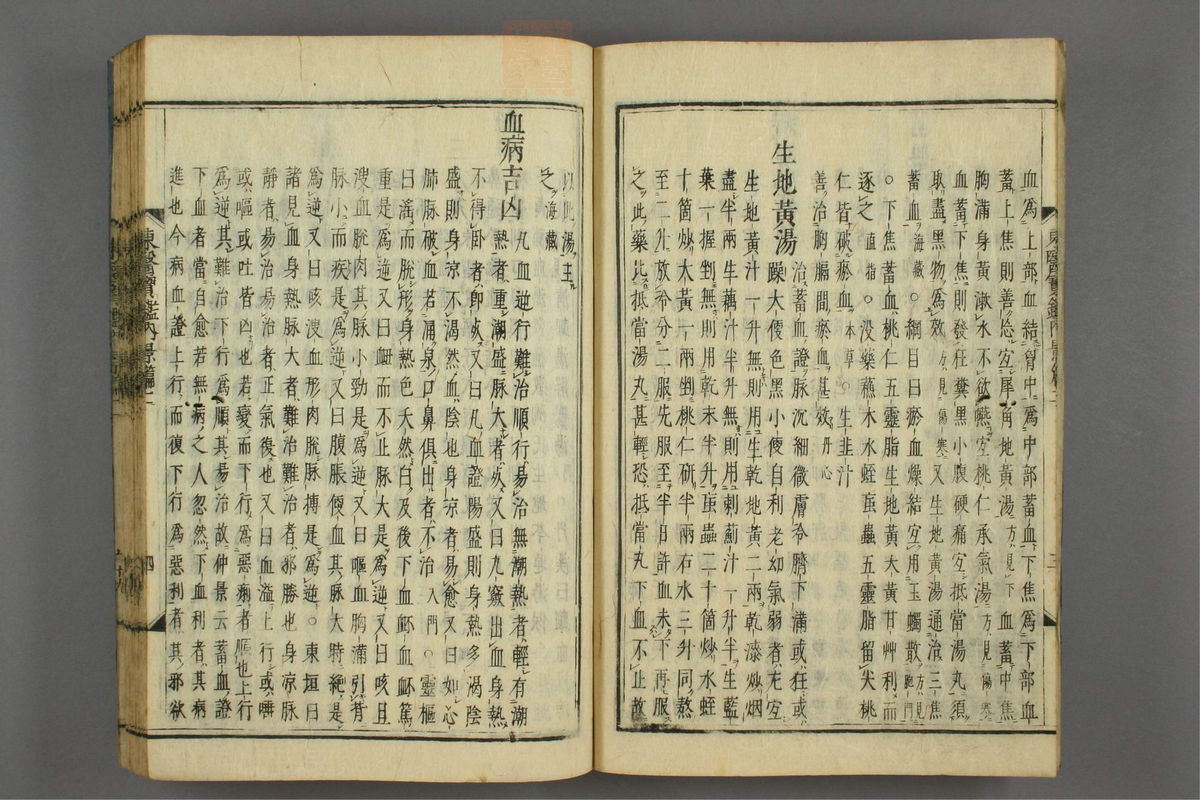 血爲上部血結胸中爲中部蓄血下焦爲下部血
蓄上焦則善忘宜犀角地黃湯方見下血蓄中焦
胸滿身黃漱水不欲嚥宜桃仁承氣湯方見傷寒
血蓄下焦則發狂糞黑小腹硬痛宜抵當湯丸須
取盡黑物爲效方見傷寒又生地黃湯通治三焦
蓄血海藏○綱目曰瘀血燥結宜用玉燭散方見胞門
○下焦蓄血桃仁五靈脂生地黃大黃甘艸利而
逐之直指○沒藥蘇木水蛭䖟蟲五靈脂留尖桃
仁皆破瘀血本草○生韭汁
善治胸膈間瘀血甚效丹心
生地黃湯
治蓄血證脉沉細微膚冷臍下滿或狂或
躁大便色黑小便自利老幼氣弱者尤宜
生地黃汁一升無則用生乾地黃二兩乾漆炒烟
盡半兩生藕汁半升無則用刺薊汁一升半生藍
葉一握剉無則用乾末半升䖟蟲二十箇炒水蛭
十箇炒大黃一兩剉桃仁研半兩右水三升同熬
至二升放冷分二服先服至半日許血未下再服
之此藥比抵當湯丸甚輕恐抵當丸下血不止故
東醫寶鑑內景篇二
三
以此湯主
之海藏
血病吉凶
凡血逆行難治順行易治無潮熱者輕有潮
熱者重潮盛脉大者死又曰九竅出血身熱
不得卧者卽死又曰凡血證陽盛則身熱多渴陰
盛則身涼不渴然血陰也身涼者易愈又曰如心
肺脉破血若涌泉口鼻俱出者不治入門○靈樞
曰淫而脫形身熱色夭然白及後下血衃血衃篤
重是爲逆又曰衄而不止脉大是爲逆又曰咳且
溲血脫肉其脉小勁是爲逆又曰嘔血胸滿引背
脉小而疾是爲逆又曰腹脹便血其脉大時絕是
爲逆又曰咳溲血形肉脫脉搏是爲逆○東垣曰
諸見血身熱脉大者難治難治者邪勝也身涼脉
靜者易治易治者正氣復也又曰血溢上行或唾
或嘔或吐皆凶也若變而下行爲惡痢者順也上行
爲逆其難治下行爲順其易治故仲景云蓄血證
下血者當自愈若無病之人忽然下血利者其病
進也今病血證上行而復下行爲惡利者其邪欲
東醫寶鑑內景篇二
四